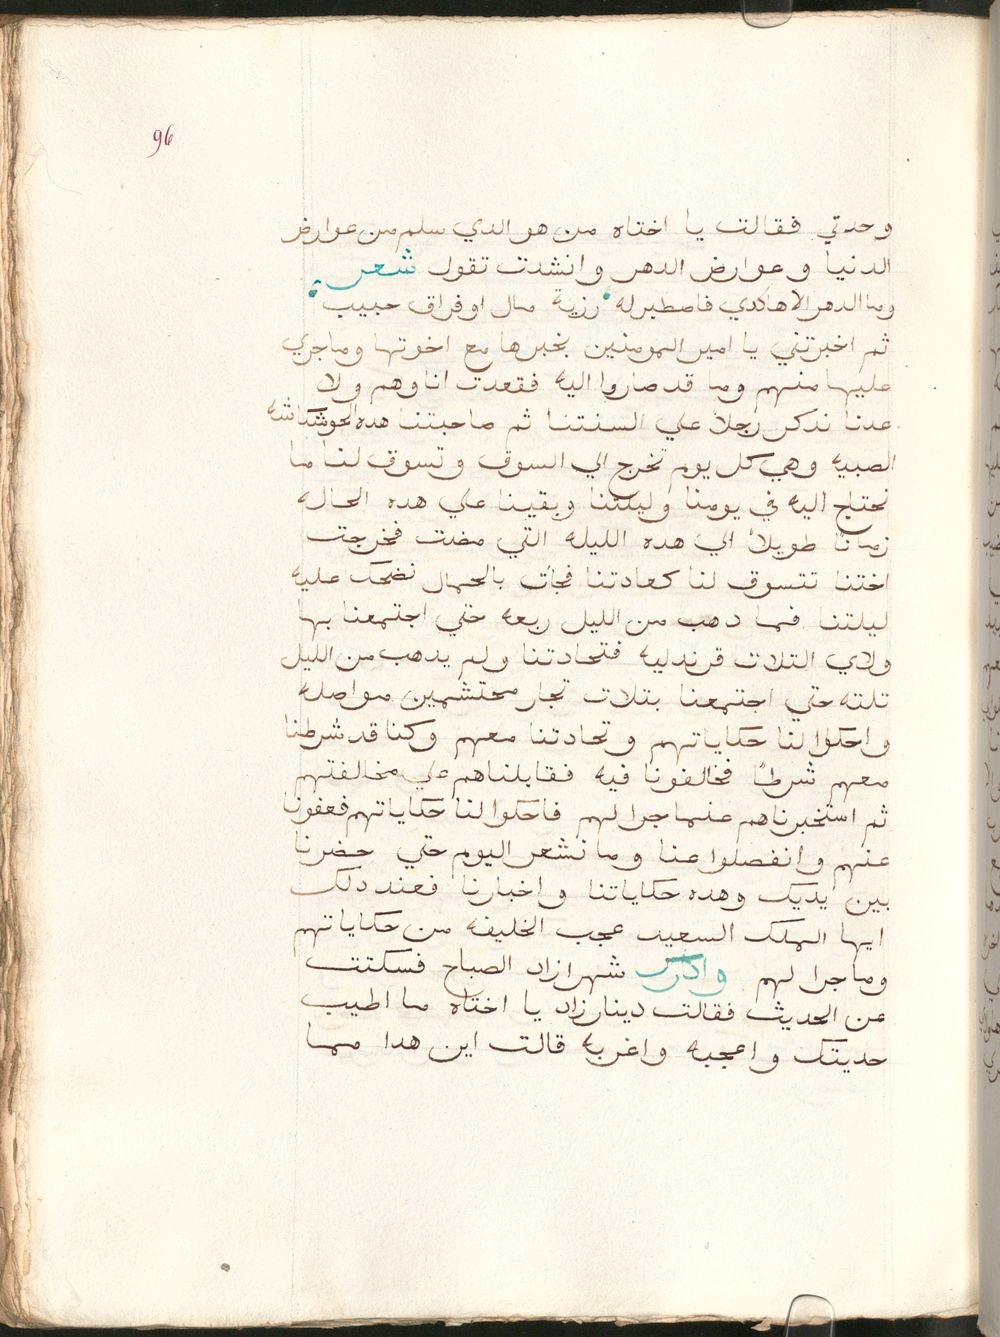 96
وحدتي فقالت يا اختاه من هو الدي سلم من عوارض
الدنيا وعوارض الدهر وانشدت تقول شعر
وما الدهر الا هاكدي فاصطبر له رزية مال او فراق حبيب
ثم اخبرتني يا امير المومنين بخبرها مع اخوتها وماجري
عليها منهم وما قد صاروا اليه فقعدت انا وهم ولا
عدنا ندكر رجلاً علي السنتنا ثم صاحبتنا هده الحوشكاشه
الصبيه وهي كل يوم تخرج الي السوق وتسوق لنا ما
نحتاج اليه في يومنا وليلتنا وبقينا علي هده الحاله
زماناً طويلاً الي هده الليله التي مضت فخرجت
اختنا تتسوق لنا كعادتنا فجأت بالحمال نضحك عليه
ليلتنا فما دهب من الليل ربعه حتي اجتمعنا بها
ولاي التلات قرندليه فتحادتنا ولم يدهب من الليل
تلته حتي اجتمعنا بتلات تجار محتشمين مواصله
واحكوا لنا حكاياتهم وتحادتنا معهم وكنا قد شرطنا
معهم شرطاً فخالفونا فيه فقابلناهم علي مخالفتهم
ثم استخبرناهم عنما جرا لهم فاحكوا لنا حكاياتهم فعفونا
عنهم وانفصلوا عنا وما نشعر اليوم حتي حضرنا
بين يديك وهده حكاياتنا واخبارنا فعند دلك
ايها الملك السعيد عجب الخليفه من حكاياتهم
وما جرا لهم وادرك شهرازاد الصباح فسكتت
عن الحديث فقالت دينارزاد يا اختاه ما اطيب
حديتك واعجبه واغربه قالت اين هدا مما